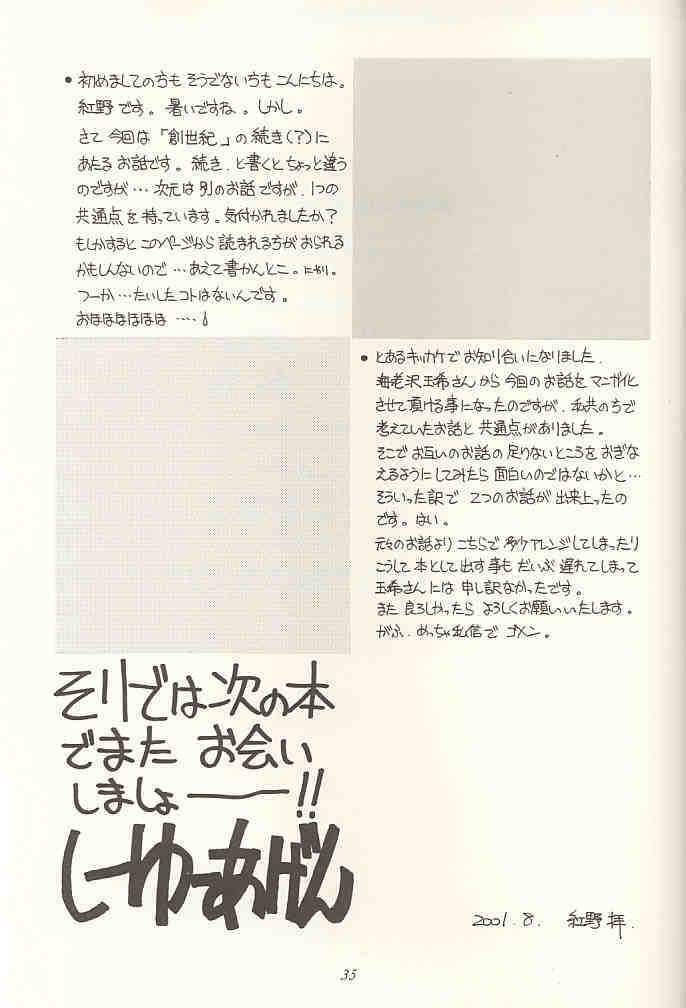 • 初めましての方も そうでない方も こんにちは。
紅野です。暑いですね。しかし。
さて 今回は「創世紀」の続き(?)に
あたるお話です。続き、と書くとちょっと違う
のですが… 次元は別のお話ですが、1つの
共通点を持っています。気付かれましたか?
もしかすると このページから読まれる方がおられる
かもしんないので …あえて書かんとこ。にやり。
つーか…たいしたコトはないんです。
おほほほほほほ ….!
• とあるキッカケで お知り合いになりました、
海老沢玉希さんから 今回のお話を マンガ化
させて頂ける事になったのですが、私共の方で
考えていたお話と 共通点がありました。
そこで お互いのお話の足りないところを おぎな
えるようにしてみたら 面白いのではないかと…
そういった訳で 2つのお話が 出来上ったの
です。はい。
元々のお話より こちらで多々アレンジしてしまったり
こうして 本として出す事も だいぶ 遅れてしまって
玉希さんには 申し訳なかったです。
また 良ろしかったら よろしくお願いいたします。
がふ、めっちゃ私信で ゴメン。
そりでは次の本
でまた お会い
しましょ――!!
しーゆーあげん
2001.8. 紅野 拝.
35